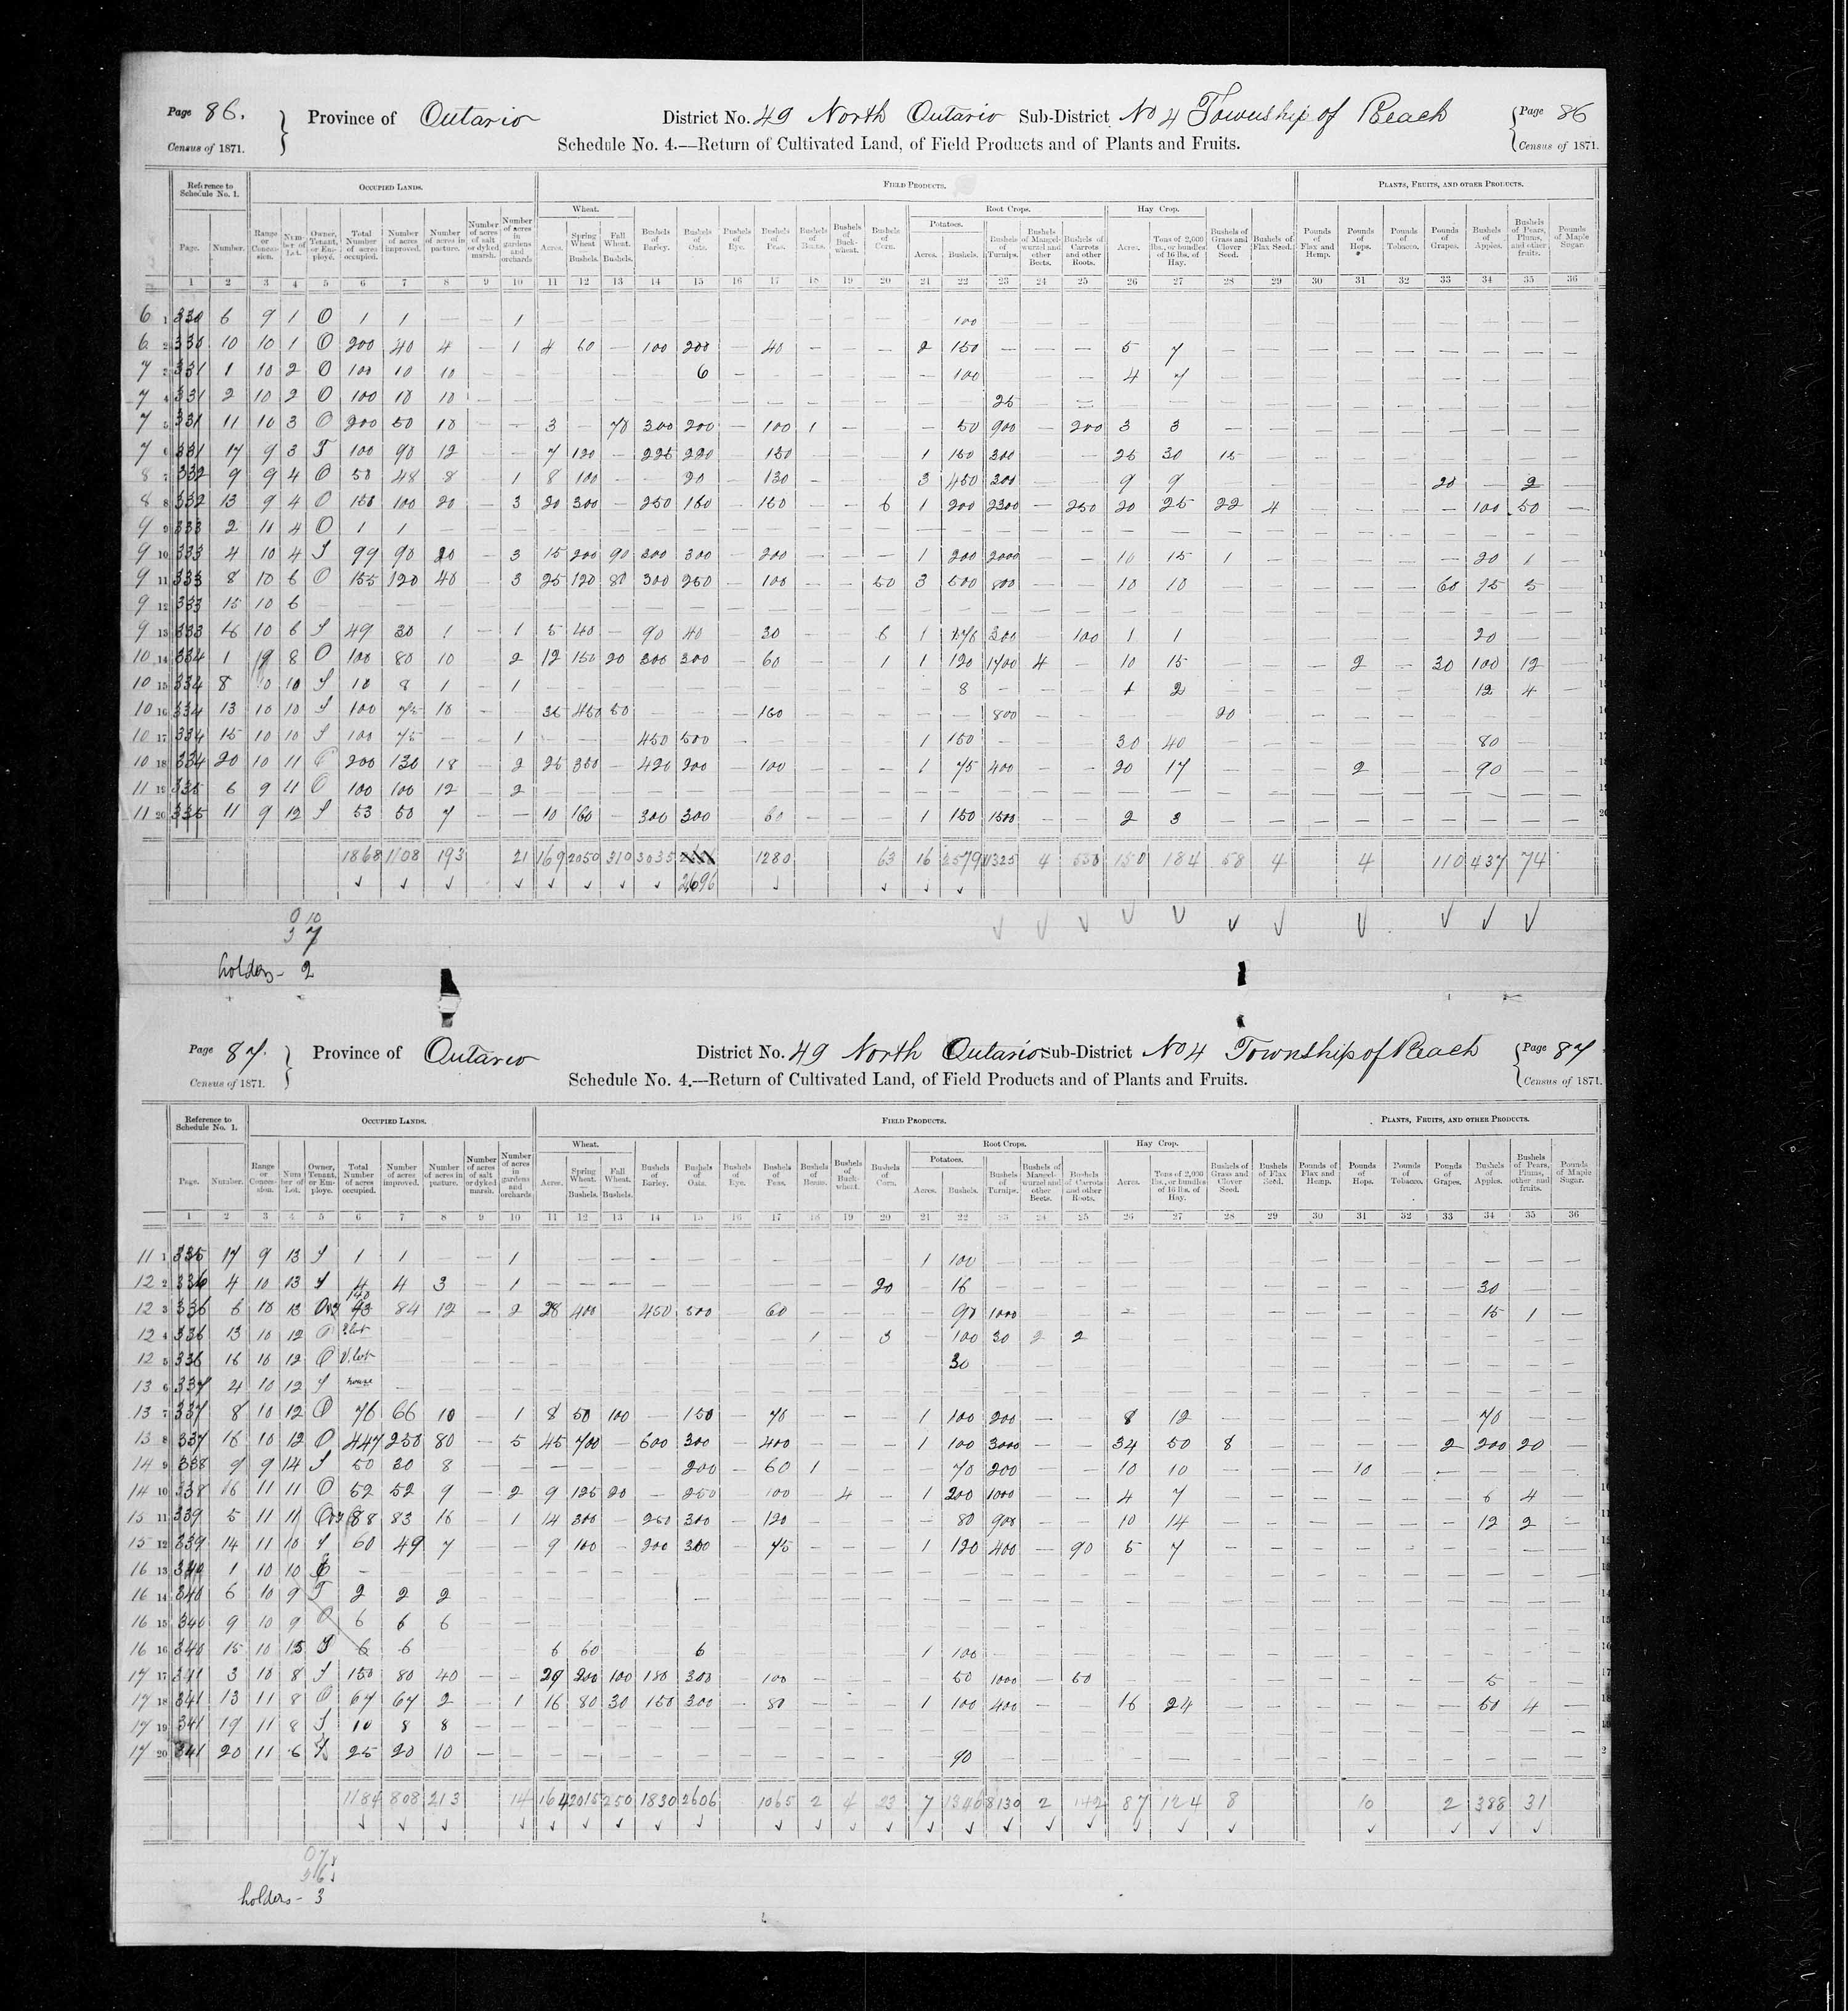 Page 86. Province of Ontario District No. 49 North Ontario Sub-District No 4 Township of Reach Page 86
Census of 1871. Schedule No. 4.—Return of Cultivated Land, of Field Products and of Plants and Fruits. Census of 1871.
Reference to Schedule No. 1. OCCUPIED LANDS. FIELD PRODUCTS. PLANTS, FRUITS, AND OTHER PRODUCTS.
Wheat. Root Crops. Hay Crop.
Potatoes.
Page. Number. Range or Concession. Number of Lot. Owner, Tenant, or Employé. Total Number of acres occupied. Number of acres improved. Number of acres in pasture. Number of acres of salt or dyked marsh. Number of acres in gardens and orchards Acres. Spring Wheat Bushels. Fall Wheat. Bushels. Bushels of Barley. Bushels of Oats. Bushels of Rye. Bushels of Peas. Bushels of Beans. Bushels of Buckwheat. Bushels of Corn. Acres. Bushels. Bushels of Turnips. Bushels of Mangel-wurzel and other Beets. Bushels of Carrots and other Roots. Acres. Tons of 2,000 lbs., or bundles of 16 lbs. of Hay. Bushels of Grass and Clover Seed. Bushels of Flax Seed. Pounds of Flax and Hemp. Pounds of Hops. Pounds of Tobacco. Pounds of Grapes. Bushels of Apples. Bushels of Pears, Plums, and other fruits. Pounds of Maple Sugar.
1 2 3 4 5 6 7 8 9 10 11 12 13 14 15 16 17 18 19 20 21 22 23 24 25 26 27 28 29 30 31 32 33 34 35 36
6 1 330 6 9 1 O 1 1 — — 1 100
6 2 330 10 10 1 O 200 40 4 — 1 4 60 — 100 200 — 40 — 2 150 — 5 7
7 3 331 1 10 2 O 100 10 10 — 6 — 100 — 4 7
7 4 331 2 10 2 O 100 10 10 — 25
7 5 331 11 10 3 O 200 50 10 — 3 — 70 300 200 — 100 1 — 50 900 — 200 3 3
7 6 331 17 9 3 T 100 90 12 — 7 120 — 225 220 150 — 1 150 300 — 25 30 15
8 7 332 9 9 4 O 50 48 8 — 1 8 100 — 20 — 130 — 3 450 300 — 9 9 — 20 — 2
8 8 332 13 9 4 O 150 100 20 — 3 20 300 — 250 160 — 160 — 6 1 200 2300 — 250 20 25 22 4 — 100 50 —
9 9 333 2 11 4 O 1 1 —
9 10 333 4 10 4 T 99 90 20 — 3 15 200 90 300 300 — 200 — 1 200 2000 — 10 15 1 — 20 1
9 11 333 8 10 6 O 155 120 40 — 3 25 120 80 300 250 — 100 — 50 3 500 800 — 10 10 — 60 75 5
9 12 333 15 10 6 —
9 13 333 16 10 6 T 49 30 1 — 1 5 40 — 90 40 — 30 — 6 1 300 — 100 1 1 — 20
10 14 334 1 8 O 100 80 10 — 2 12 150 20 300 300 — 60 — 1 1 120 1700 4 — 10 15 — 2 — 30 100 12 —
10 15 334 8 10 10 T 10 8 1 — 1 — 8 — 1 2 — 12 4 —
10 16 334 13 10 10 T 100 75 10 — 35 450 50 — 160 — 800 — 20
10 17 334 15 10 10 T 100 75 — 1 — 450 500 — 1 150 — 30 40 — 80
10 18 334 20 10 11 O 200 130 18 — 2 25 350 — 420 200 — 100 — 1 75 400 — 20 17 — 2 — 90
11 19 335 6 9 11 O 100 100 12 — 2 —
11 20 335 11 9 12 T 53 50 7 — 10 160 — 300 300 — 60 — 1 150 1500 — 2 3
1868 1108 193 21 169 2050 310 3035 1280 63 16 2579 11325 4 550 150 184 58 4 4 110 437 74
2696
O 10
7
holders - 2
Page 87. Province of Ontario District No. 49 North Ontario Sub-District No 4 Township of Reach Page 87
Census of 1871. Schedule No. 4.—Return of Cultivated Land, of Field Products and of Plants and Fruits. Census of 1871.
Reference to Schedule No. 1. OCCUPIED LANDS. FIELD PRODUCTS. PLANTS, FRUITS, AND OTHER PRODUCTS.
Wheat. Root Crops. Hay Crop.
Potatoes.
Page. Number. Range or Concession. Number of Lot. Owner, Tenant, or Employe. Total Number of acres occupied. Number of acres improved. Number of acres in pasture. Number of acres of salt or dyked marsh. Number of acres in gardens and orchards Acres. Spring Wheat. Bushels. Fall Wheat. Bushels. Bushels of Barley. Bushels of Oats. Bushels of Rye. Bushels of Peas. Bushels of Beans. Bushels of Buckwheat. Bushels of Corn. Acres. Bushels. Bushels of Turnips. Bushels of Mangel-wurzel and other Beets. Bushels of Carrots and other Roots. Acres. Tons of 2,000 lbs., or bundles of 16 lbs. of Hay. Bushels of Grass and Clover Seed. Bushels of Flax Seed. Pounds of Flax and Hemp. Pounds of Hops. Pounds of Tobacco. Pounds of Grapes. Bushels of Apples. Bushels of Pears, Plums, other and fruits. Pounds of Maple Sugar.
1 2 3 4 5 6 7 8 9 10 11 12 13 14 15 16 17 18 19 20 21 22 23 24 25 26 27 28 29 30 31 32 33 34 35 36
11 1 335 17 9 13 T 1 1 — 1 — 1 100
12 2 336 4 10 13 T 4 4 3 — 1 — 20 — 16 — 30
12 3 336 6 10 13 140 84 12 — 2 28 400 450 500 — 60 — 90 1000 — 15 1 —
12 4 336 13 10 12 O lot — 1 — 3 — 100 30 2 2
12 5 336 16 10 12 O V. lot — 30
13 6 337 4 10 12 T house —
13 7 337 8 10 12 O 76 66 10 — 1 8 50 100 — 150 — 70 — 1 100 200 — 8 12 — 70
13 8 337 16 10 12 O 447 250 80 — 5 45 700 — 600 300 — 400 — 1 100 3000 — 34 50 8 — 2 200 20 —
14 9 338 9 9 14 T 50 30 8 — 200 — 60 1 — 70 200 — 10 10 — 10 —
14 10 338 16 11 11 O 52 52 9 — 2 9 125 20 — 250 — 100 — 4 — 1 200 1000 — 4 7 — 6 4
15 11 339 5 11 11 88 83 16 — 1 14 300 — 250 300 — 120 80 900 — 10 14 — 12 2
15 12 339 14 11 10 T 60 49 7 — 9 100 — 200 300 — 75 — 1 120 400 — 90 5 7
16 13 340 1 10 10 —
16 14 340 6 10 9 T 2 2 2
16 15 340 9 10 9 O 6 6 6 —
16 16 340 15 10 T 6 6 6 60 6 1 100
17 17 341 3 10 8 T 150 80 40 — 29 200 100 180 300 — 100 — 50 1000 — 50 — 5
17 18 341 13 11 8 O 67 67 2 — 1 16 80 30 150 300 — 80 — 1 100 400 — 16 24 — 50 4
17 19 341 19 11 8 T 10 8 8 —
17 20 341 20 11 6 25 20 10 — 90
1184 808 213 14 164 2015 250 1830 2606 1065 2 4 23 7 1346 8130 2 142 87 124 8 10 2 388 31
O 7
holders - 3